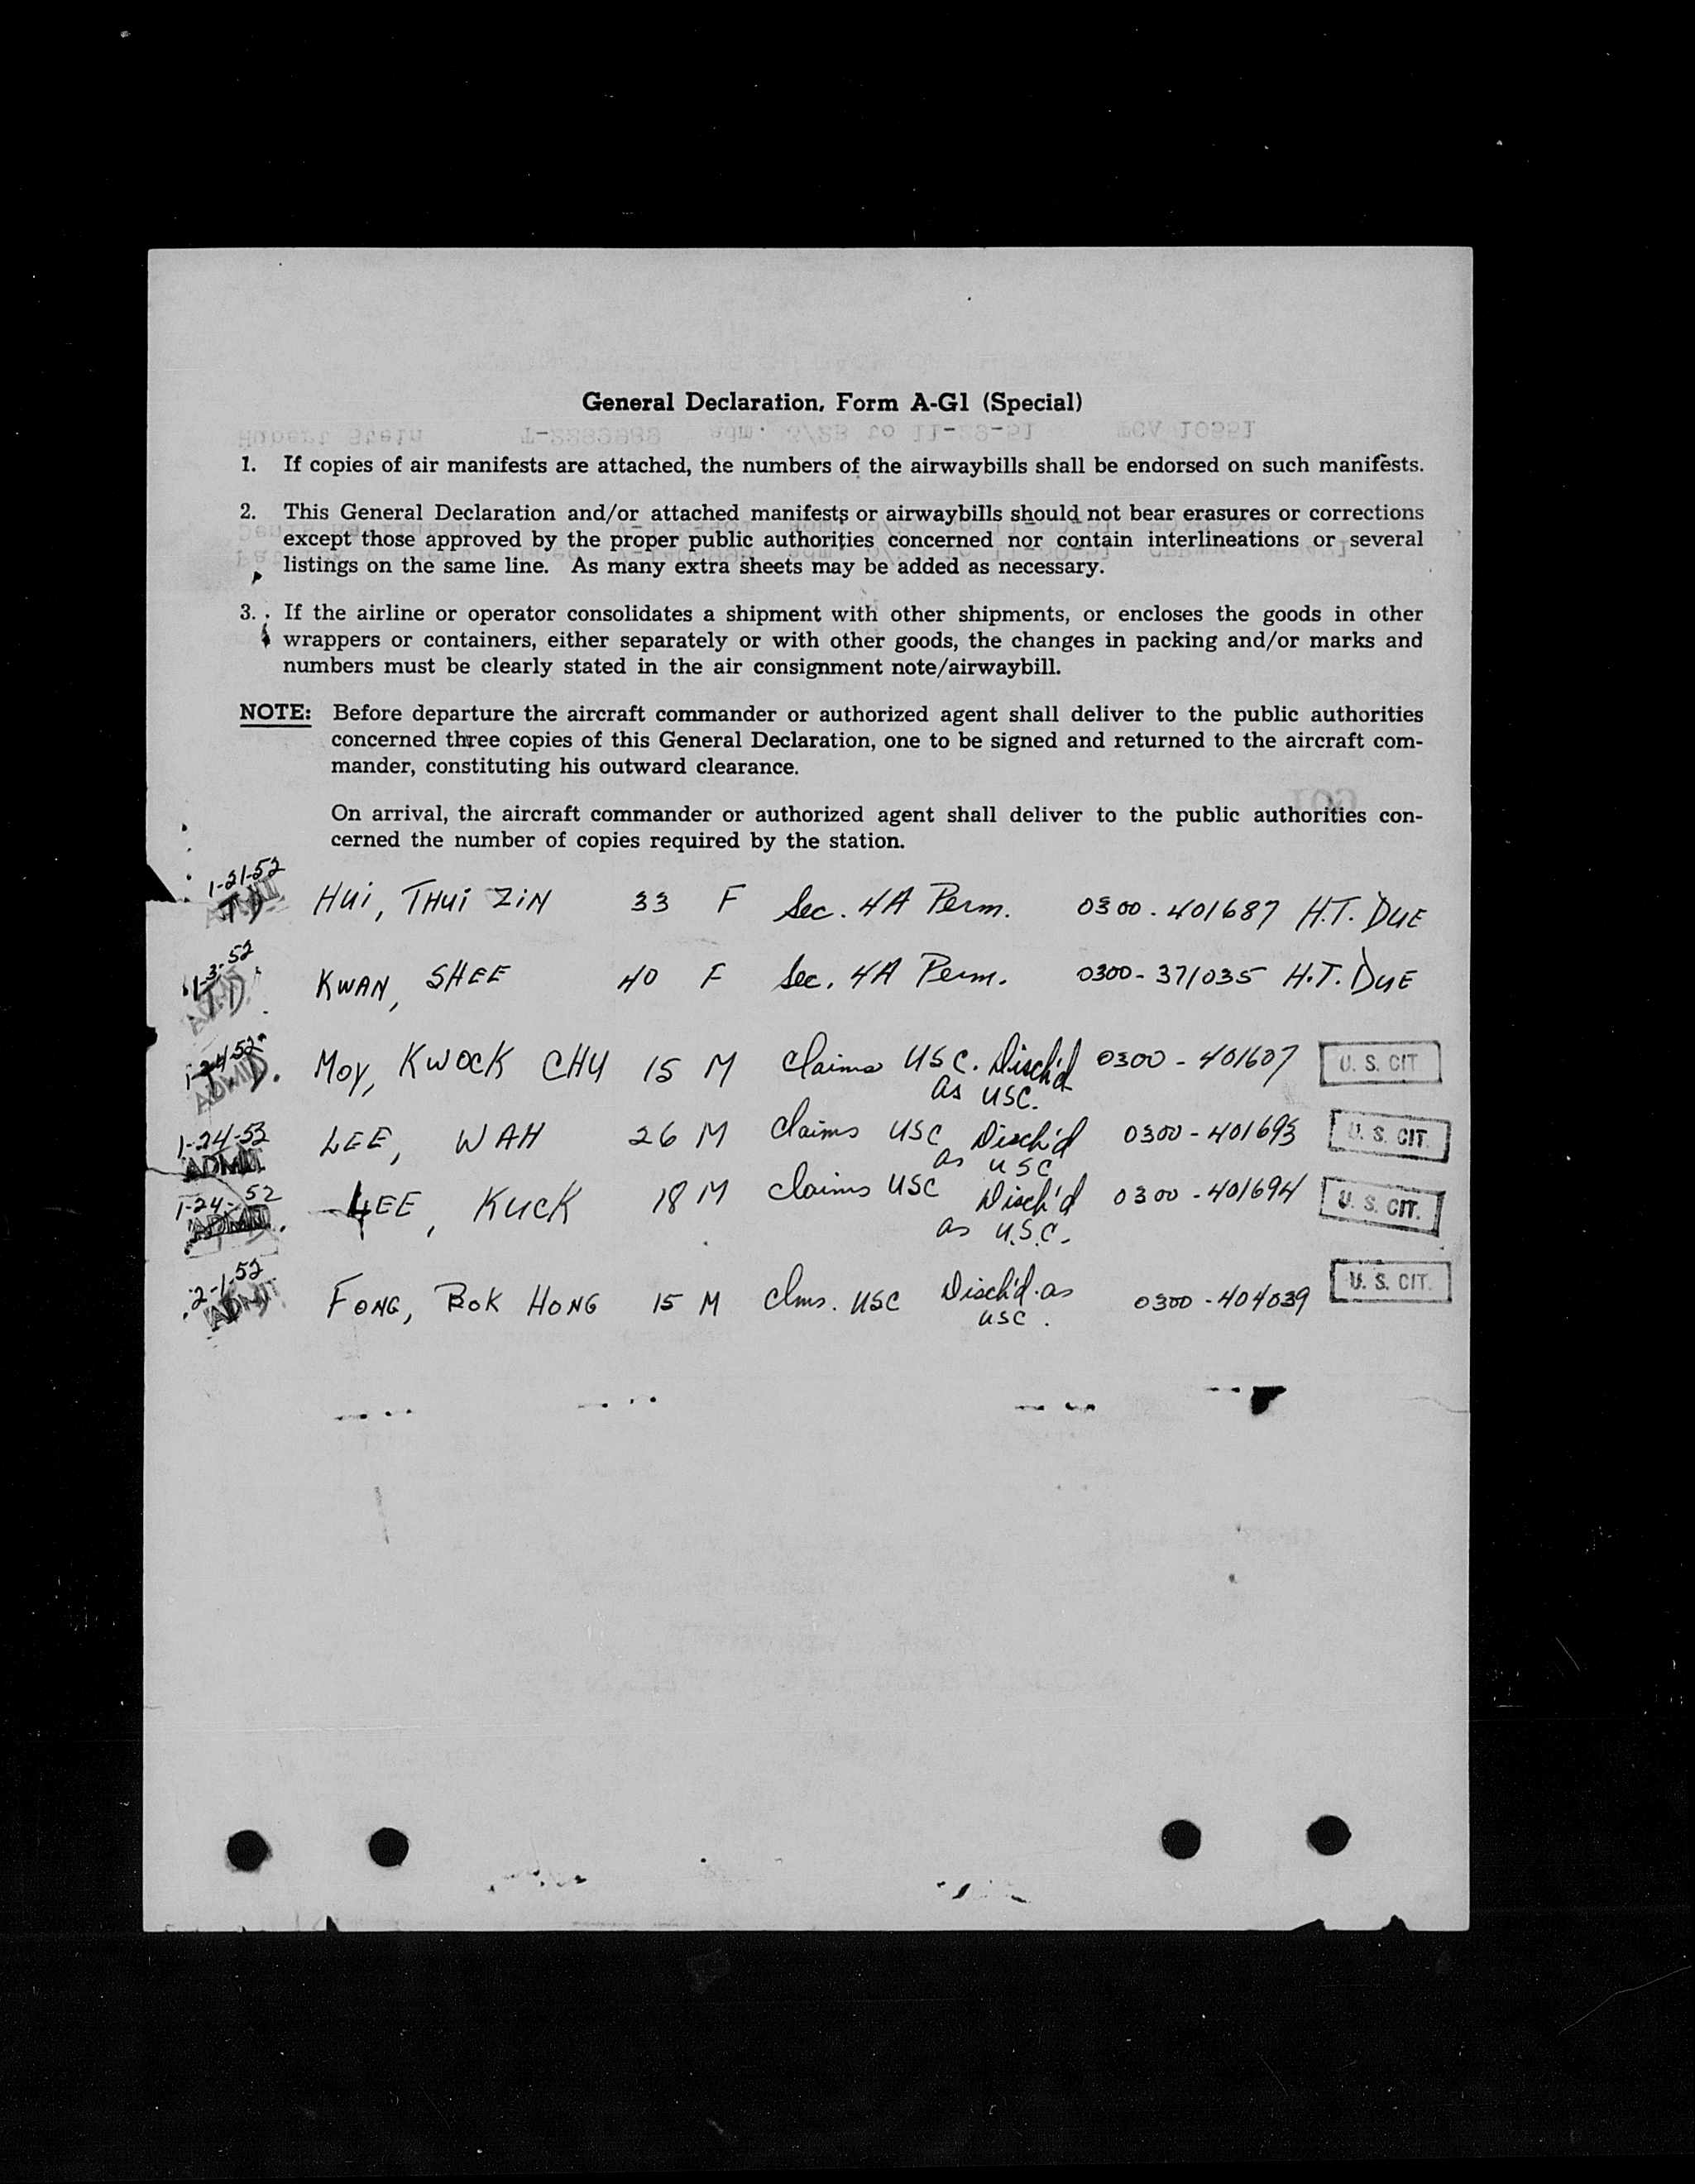 General Declaration, Form A-G1 (Special)
1. If copies of air manifests are attached, the numbers of the airwaybills shall be endorsed on such manifests.
2. This General Declaration and/or attached manifests or airwaybills should not bear erasures or corrections
except those approved by the proper public authorities concerned nor contain interlineations or several
listings on the same line. As many extra sheets may be added as necessary.
3. If the airline or operator consolidates a shipment with other shipments, or encloses the goods in other
wrappers or containers, either separately or with other goods, the changes in packing and/or marks and
numbers must be clearly stated in the air consignment note/airwaybill.
NOTE: Before departure the aircraft commander or authorized agent shall deliver to the public authorities
concerned three copies of this General Declaration, one to be signed and returned to the aircraft com-
mander, constituting his outward clearance.
On arrival, the aircraft commander or authorized agent shall deliver to the public authorities con-
cerned the number of copies required by the station.
1-21-52
ADMIT HUI, THUI ZIN 33 F Sec. 4A Perm. 0300-401687 H.T. DUE
1-3-52
KWAN, SHEE 40 F Sec. 4A Perm. 0300-371035 H.T. DUE
1-24-52
MOY, KWOCK CHU 15 M Claims USC. Disch'd 0300-401607 U. S. CIT
as USC.
1-24-52 LEE, WAH 26 M Claims USC Disch'd 0300-401693 U. S. CIT.
ADMIT as USC
1-24-52 LEE, KUCK 18 M Claims USC Disch'd 0300-401694 U. S. CIT.
ADMIT as U.S.C.
2-1-52
ADMIT FONG, BOK HONG 15 M Clms. USC Disch'd. as 0300-404039 U. S. CIT.
USC.